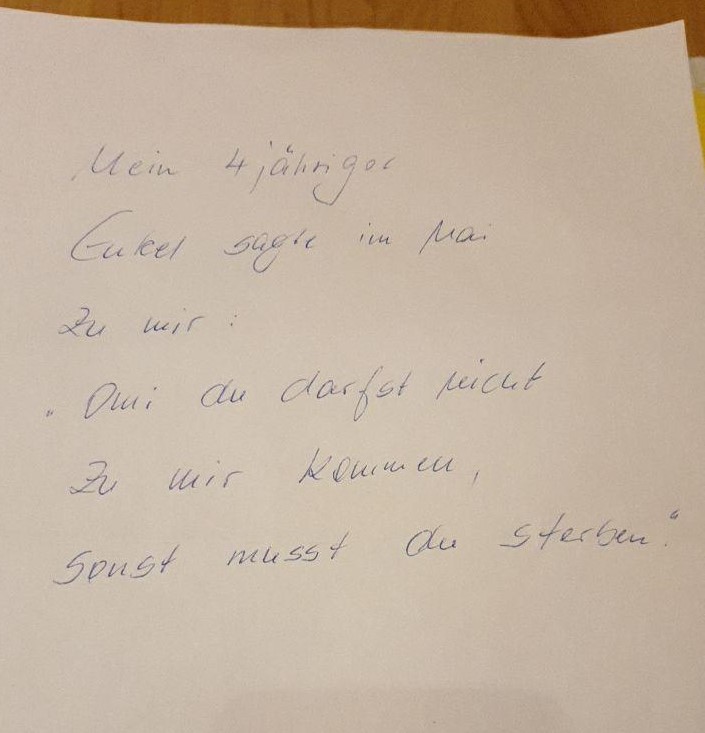 Mein 4jähriger
Enkel sagte im Mai
Zu mir:
„Omi du darfst nicht
Zu mir kommen,
Sonst musst du sterben."